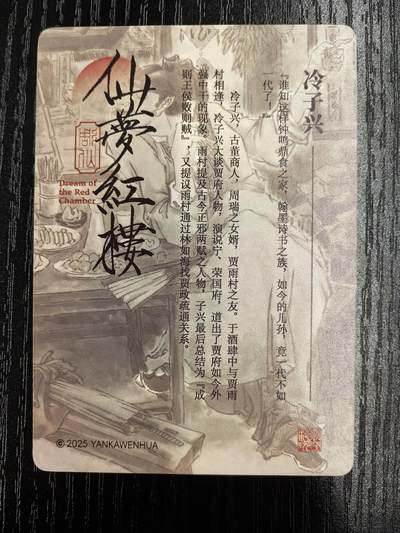 冷子兴
“谁知这样钟鸣鼎食之家，翰墨诗书之族，如今的儿孙，竟一代不如
一代了！”
冷子兴，古董商人，周瑞之女婿，贾雨村之友。于酒肆中与贾雨
村相逢，冷子兴大谈贾府人物，演说宁、荣国府，道出了贾府如今外
强中干的现象。雨村提及古今正邪两赋之人物，子兴最后总结为“成
则王侯败则贼”，又提议雨村通过林如海找贾政疏通关系。
仙夢紅樓
Dream of
the Red
Chamber
© 2025 YANKAWENHUA